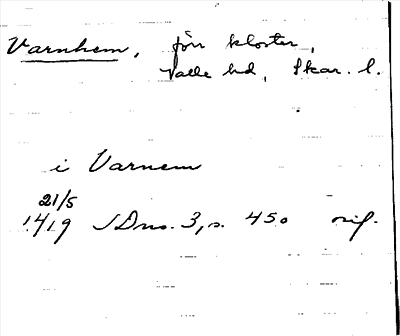 Varnhem, förr kloster,
Valle hd, Skar. l.
i Varnem
21/5
1419 SDns. 3, s. 450 orig.